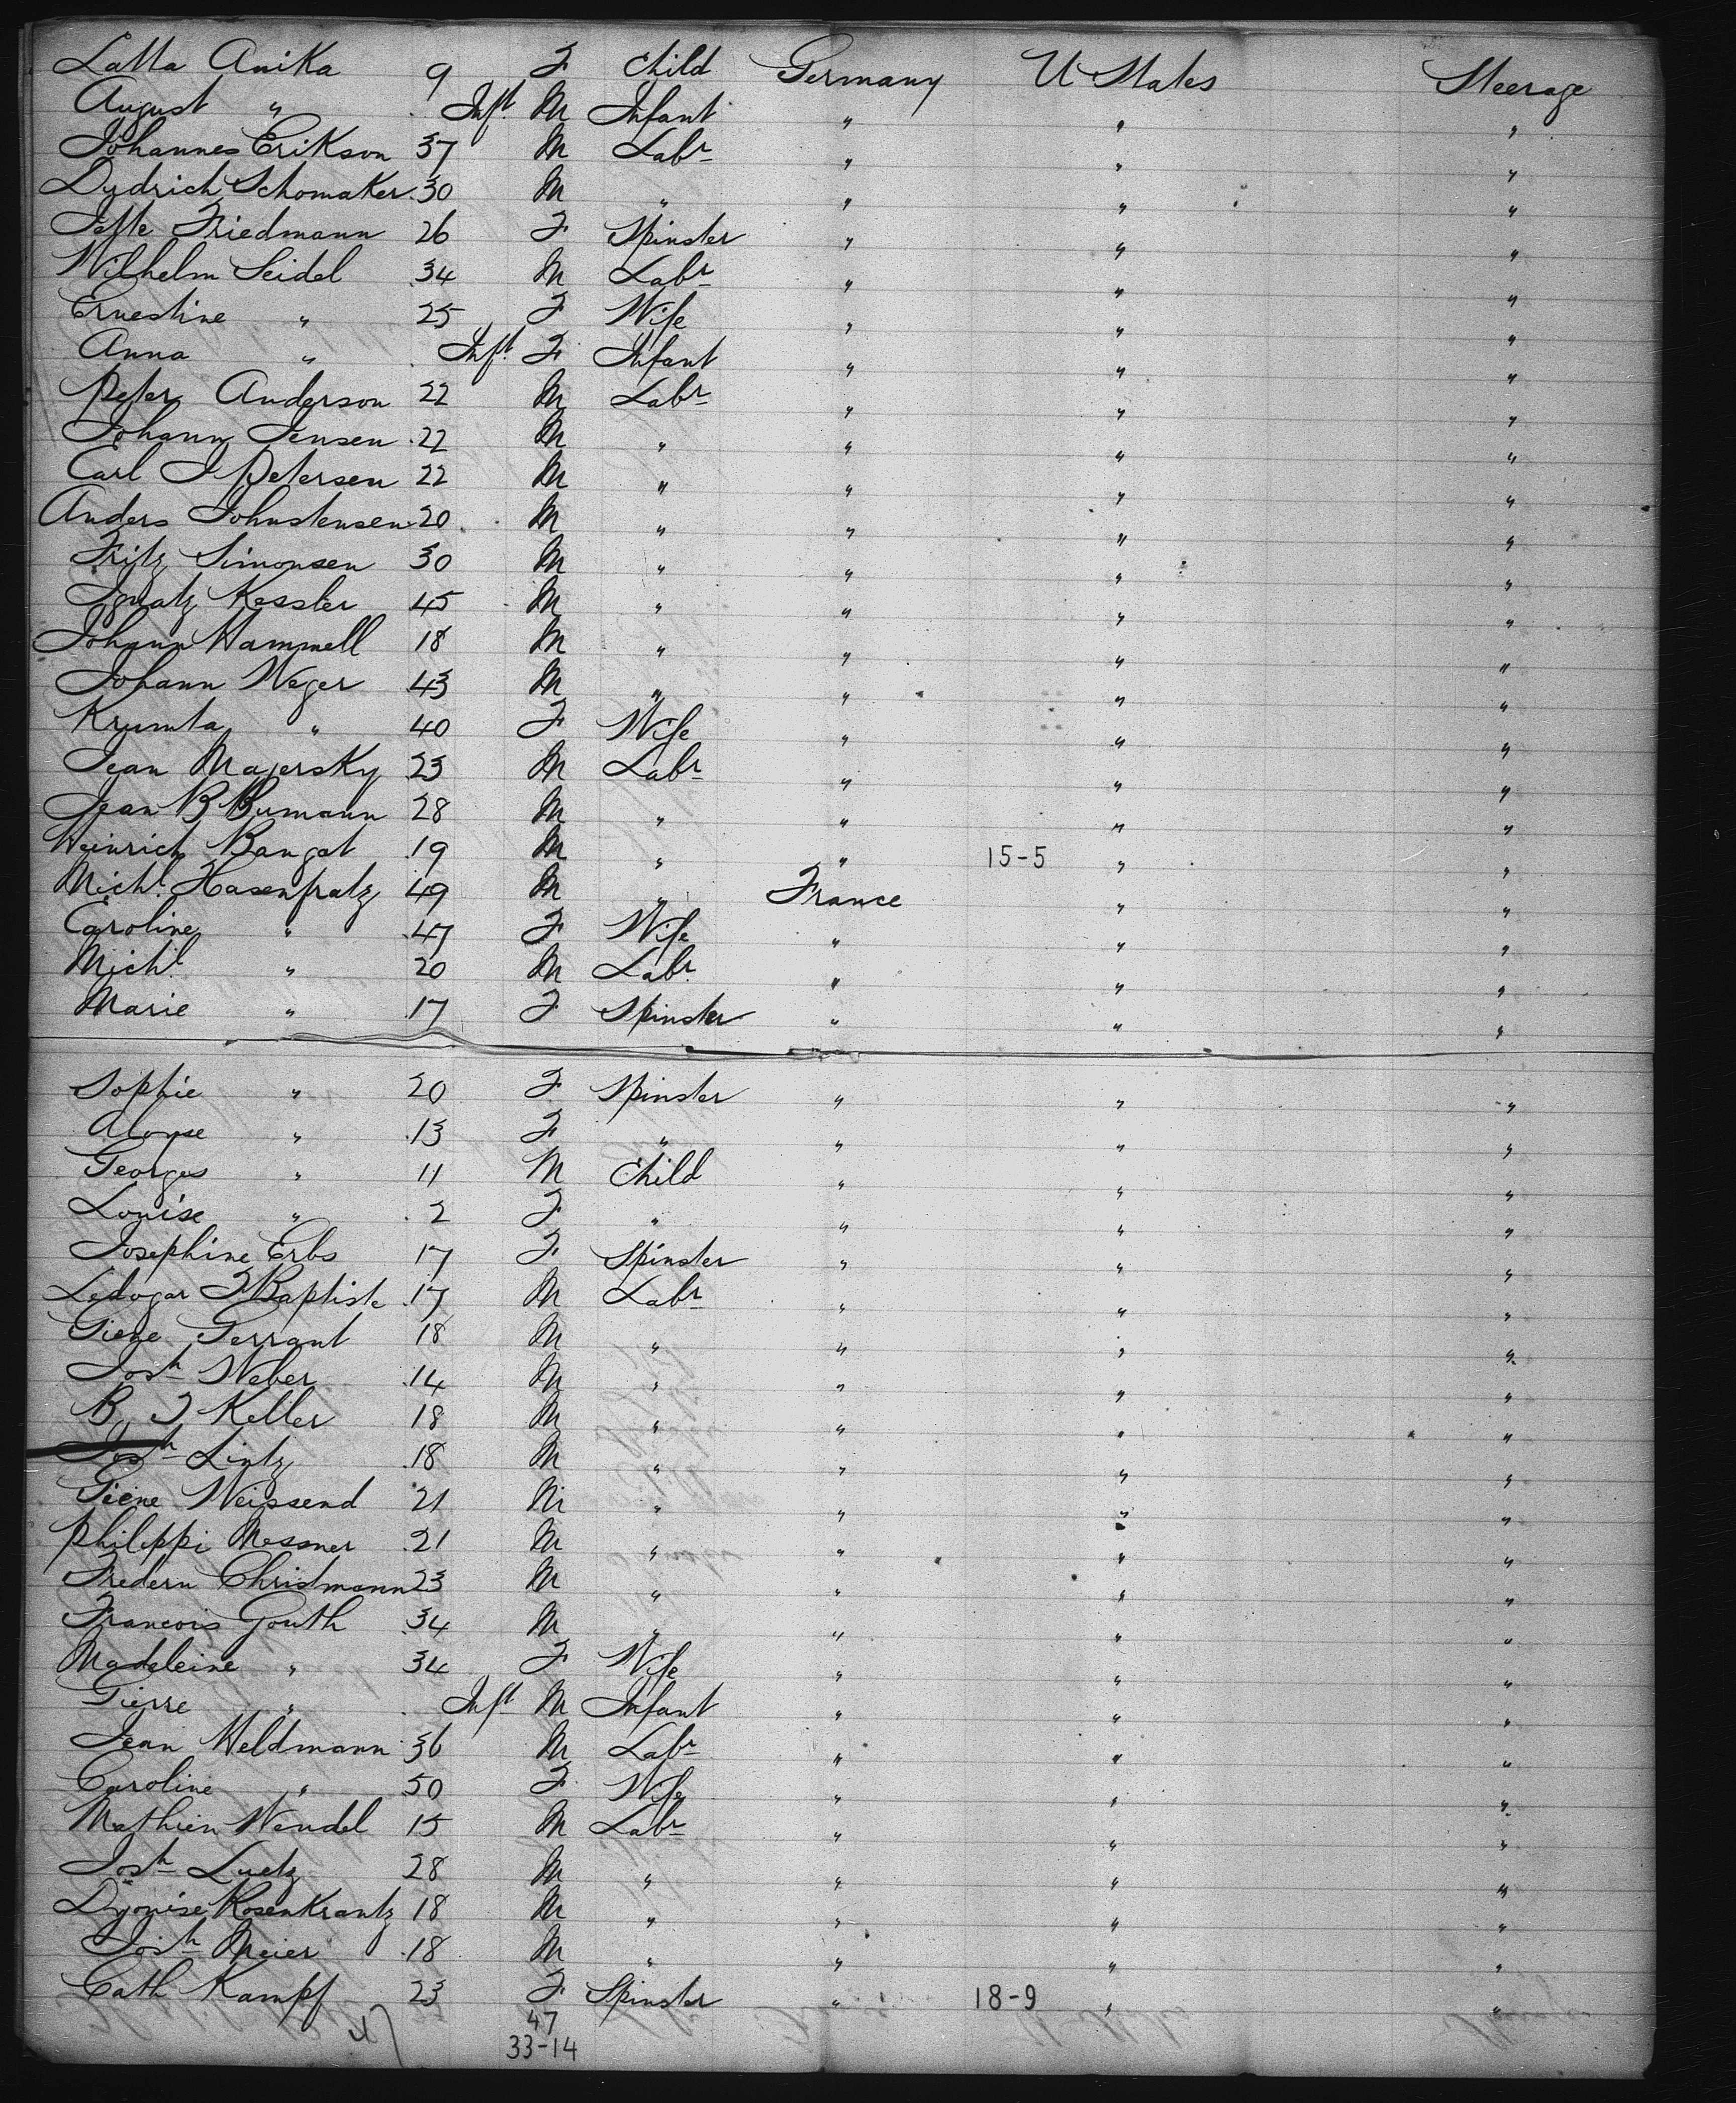 Latta Anika 9 F Child Germany U States Steerage
August " Inft. M Infant " " "
Johannes Erikson 37 M Labr " " "
Dydrich Schomaker 30 M " " " "
Jette Friedmann 26 F Spinster " " "
Wilhelm Seidel 34 M Labr " " "
Ernestine " 25 F Wife " " "
Anna " Inft. F Infant " " "
Peter Anderson 22 M Labr " " "
Johann Jensen 22 M " " " "
Carl J Petersen 22 M " " " "
Anders Johnstensen 20 M " " " "
Fritz Simonsen 30 M " " " "
Ignatz Kessler 45 M " " " "
Johann Hammell 18 M " " " "
Johann Weger 43 M " " " "
Krumta " 40 F Wife " " "
Jean Majersky 23 M Labr " " "
Jean B Bumann 28 M " " " "
Heinrich Bangat 19 M " " 15-5 " "
Michl. Hasenfratz 49 M " France " "
Caroline " 47 F Wife " " "
Michl. " 20 M Labr. " " "
Marie " 17 F Spinster " " "
Sophie " 20 F Spinster " " "
Aloyse " 13 F " " " "
Georges " 11 M Child " " "
Louise " 2 F " " " "
Josephine Erbs 17 F Spinster " " "
Ledogar J Baptiste 17 M Labr " " "
Piere Gerrant 18 M " " " "
Josh Weber 14 M " " " "
B. J Keller 18 M " " " "
Josh Lintz 18 M " " " "
Piere Weissend 21 M " " " "
Philippi Messner 21 M " " " "
Fredern Christmann 23 M " " " "
Francois Gouth 34 M " " " "
Madeleine " 34 F Wife " " "
Pierre " Inft M Infant " " "
Jean Weldmann 36 M Labr " " "
Caroline " 50 F Wife " " "
Mathieu Wendel 15 M Labr " " "
Josh Luetz 28 M " " " "
Dyonise Rosenkrantz 18 M " " " "
Josh Meier 18 M " " " "
Cath Kampf 23 F Spinster " 18-9 " "
47
33-14